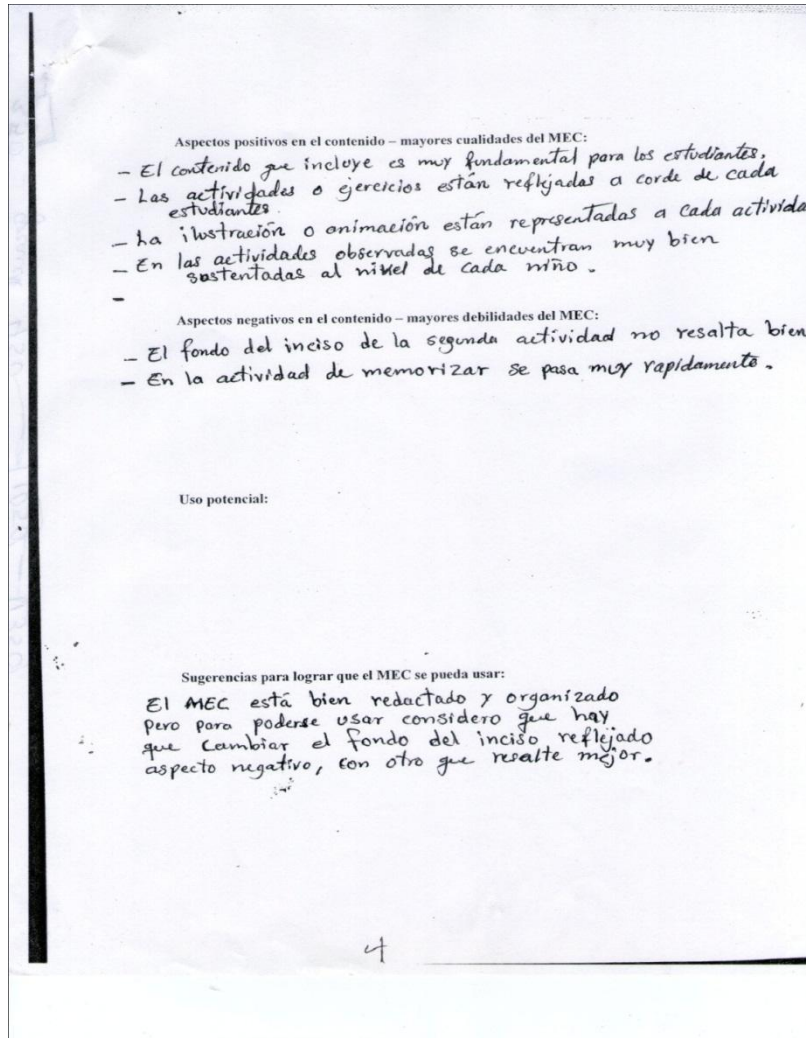 Aspectos positivos en el contenido – mayores cualidades del MEC:
- El contenido que incluye es muy fundamental para los estudiantes.
- Las actividades o ejercicios están reflejadas a corde de cada
estudiantes.
- La ilustración o animación están representadas a cada activida
- En las actividades observadas se encuentran muy bien
sustentadas al nivel de cada niño.
-
Aspectos negativos en el contenido – mayores debilidades del MEC:
- El fondo del inciso de la segunda actividad no resalta bien
- En la actividad de memorizar se pasa muy rapidamente.
Uso potencial:
Sugerencias para lograr que el MEC se pueda usar:
El MEC está bien redactado y organizado
pero para poderse usar considero que hay
que cambiar el fondo del inciso reflejado
aspecto negativo, con otro que resalte mejor.
4